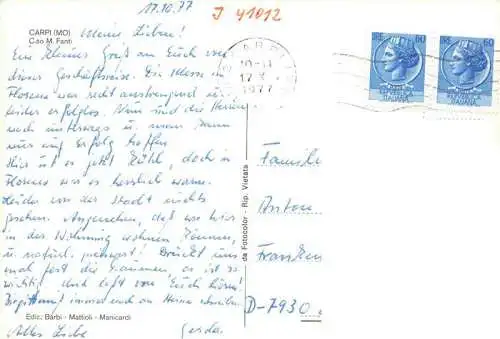 17.10.77
J 41012
CARPI (MO)
C.so M. Fanti
Meine Lieben!
Ein kleines Gruß an Euch von
dieser Geschäftsreise. Die Messe in
Florenz war recht anstrengend und
leider erfolglos. Nun sind die Herren
noch unterwegs u. man kann
nur auf Erfolg hoffen
Hier ist es jetzt kühl, doch in
Florenz war es herrlich warm.
Leider von der Stadt nichts
gesehen. Angenehm, daß wir hier
in der Wohnung wohnen können,
u. natürl. Drückt uns
mal fest die Daumen, es ist so
wichtig! Und laßt von Euch hören!
immer noch an Heinz schreiben
Alles Liebe
Gerda
Ediz. Barbi - Mattioli - Manicardi
da Fotocolor - Rip. Vietata
CARPI
10-11
17 X
1977
60
60
Familie
Anton
Franken
D-7930